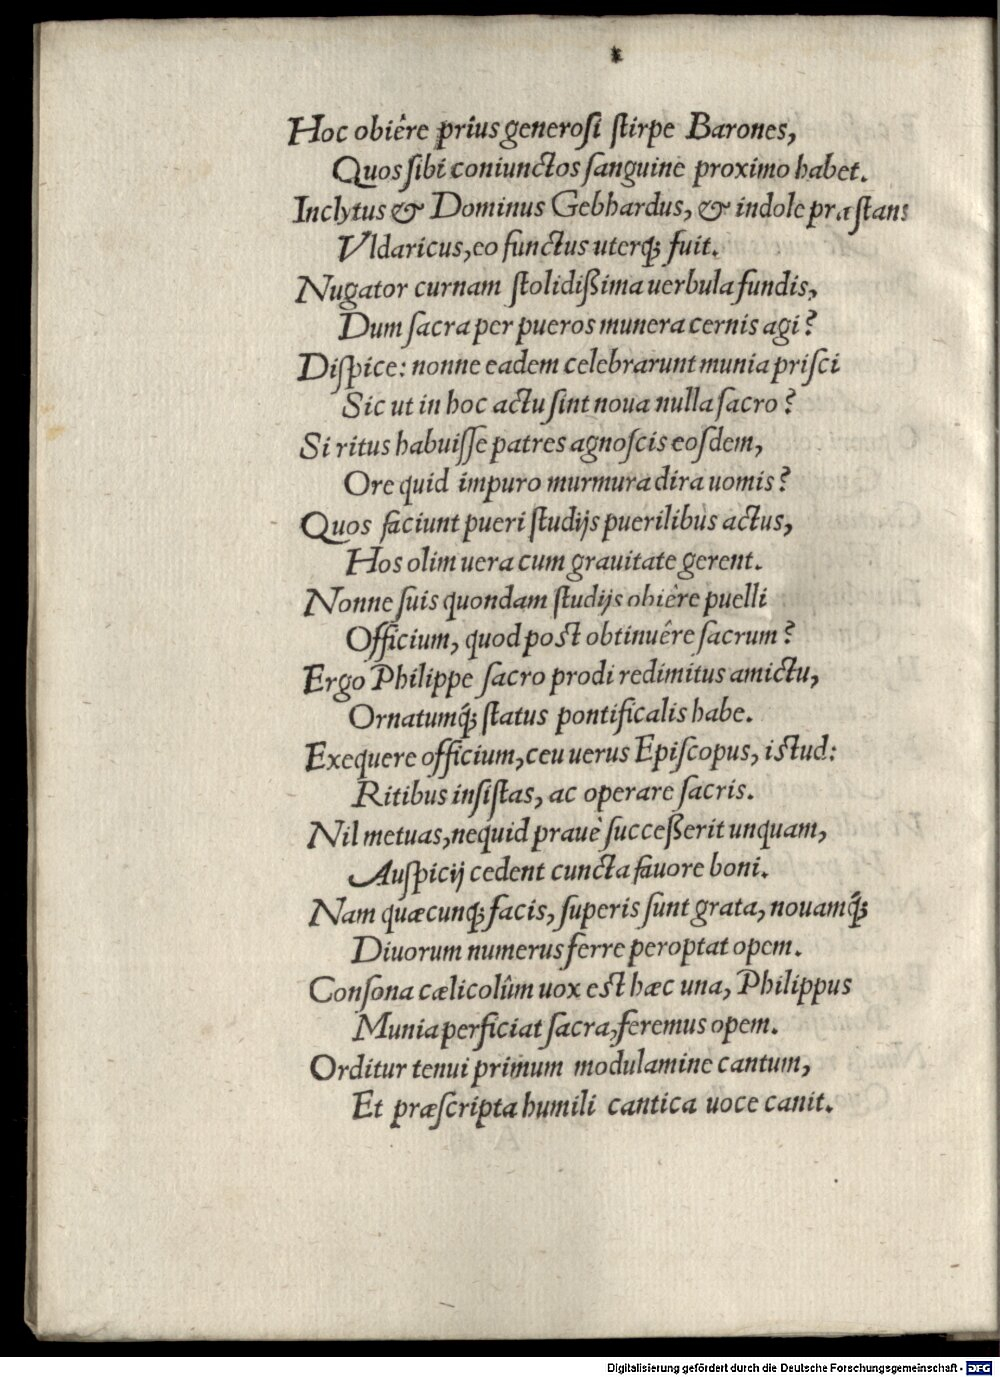 Hoc obiêre prius generosi stirpe Barones,
Quos sibi coniunctos sanguine proximo habet.
Inclytus & Dominus Gebhardus, & indole præstans
Vldaricus, eo functus uterq; fuit.
Nugator cur nam stolidißima uerbula fundis,
Dum sacra per pueros munera cernis agi?
Dispice: nonne eadem celebrarunt munia prisci
Sic ut in hoc actu sint noua nulla sacro?
Si ritus habuisse patres agnoscis eosdem,
Ore quid impuro murmura dira uomis?
Quos faciunt pueri studijs puerilibus actus,
Hos olim uera cum grauitate gerent.
Nonne suis quondam studijs obière puelli
Officium, quod post obtinuêre sacrum?
Ergo Philippe sacro prodi redimitus amictu,
Ornatumq́; status pontificalis habe.
Exequere officium, ceu uerus Episcopus, istud:
Ritibus insistas, ac operare sacris.
Nil metuas, nequid prauè succeßerit unquam,
Auspicij cedent cuncta fauore boni.
Nam quæcunq; facis, superis sunt grata, nouamq́;
Diuorum numerus ferre peroptat opem.
Consona cælicolûm uox est hæc una, Philippus
Munia perficiat sacra, feremus opem.
Orditur tenui primum modulamine cantum,
Et præscripta humili cantica uoce canit.
Digitalisierung gefördert durch die Deutsche Forschungsgemeinschaft - DFG